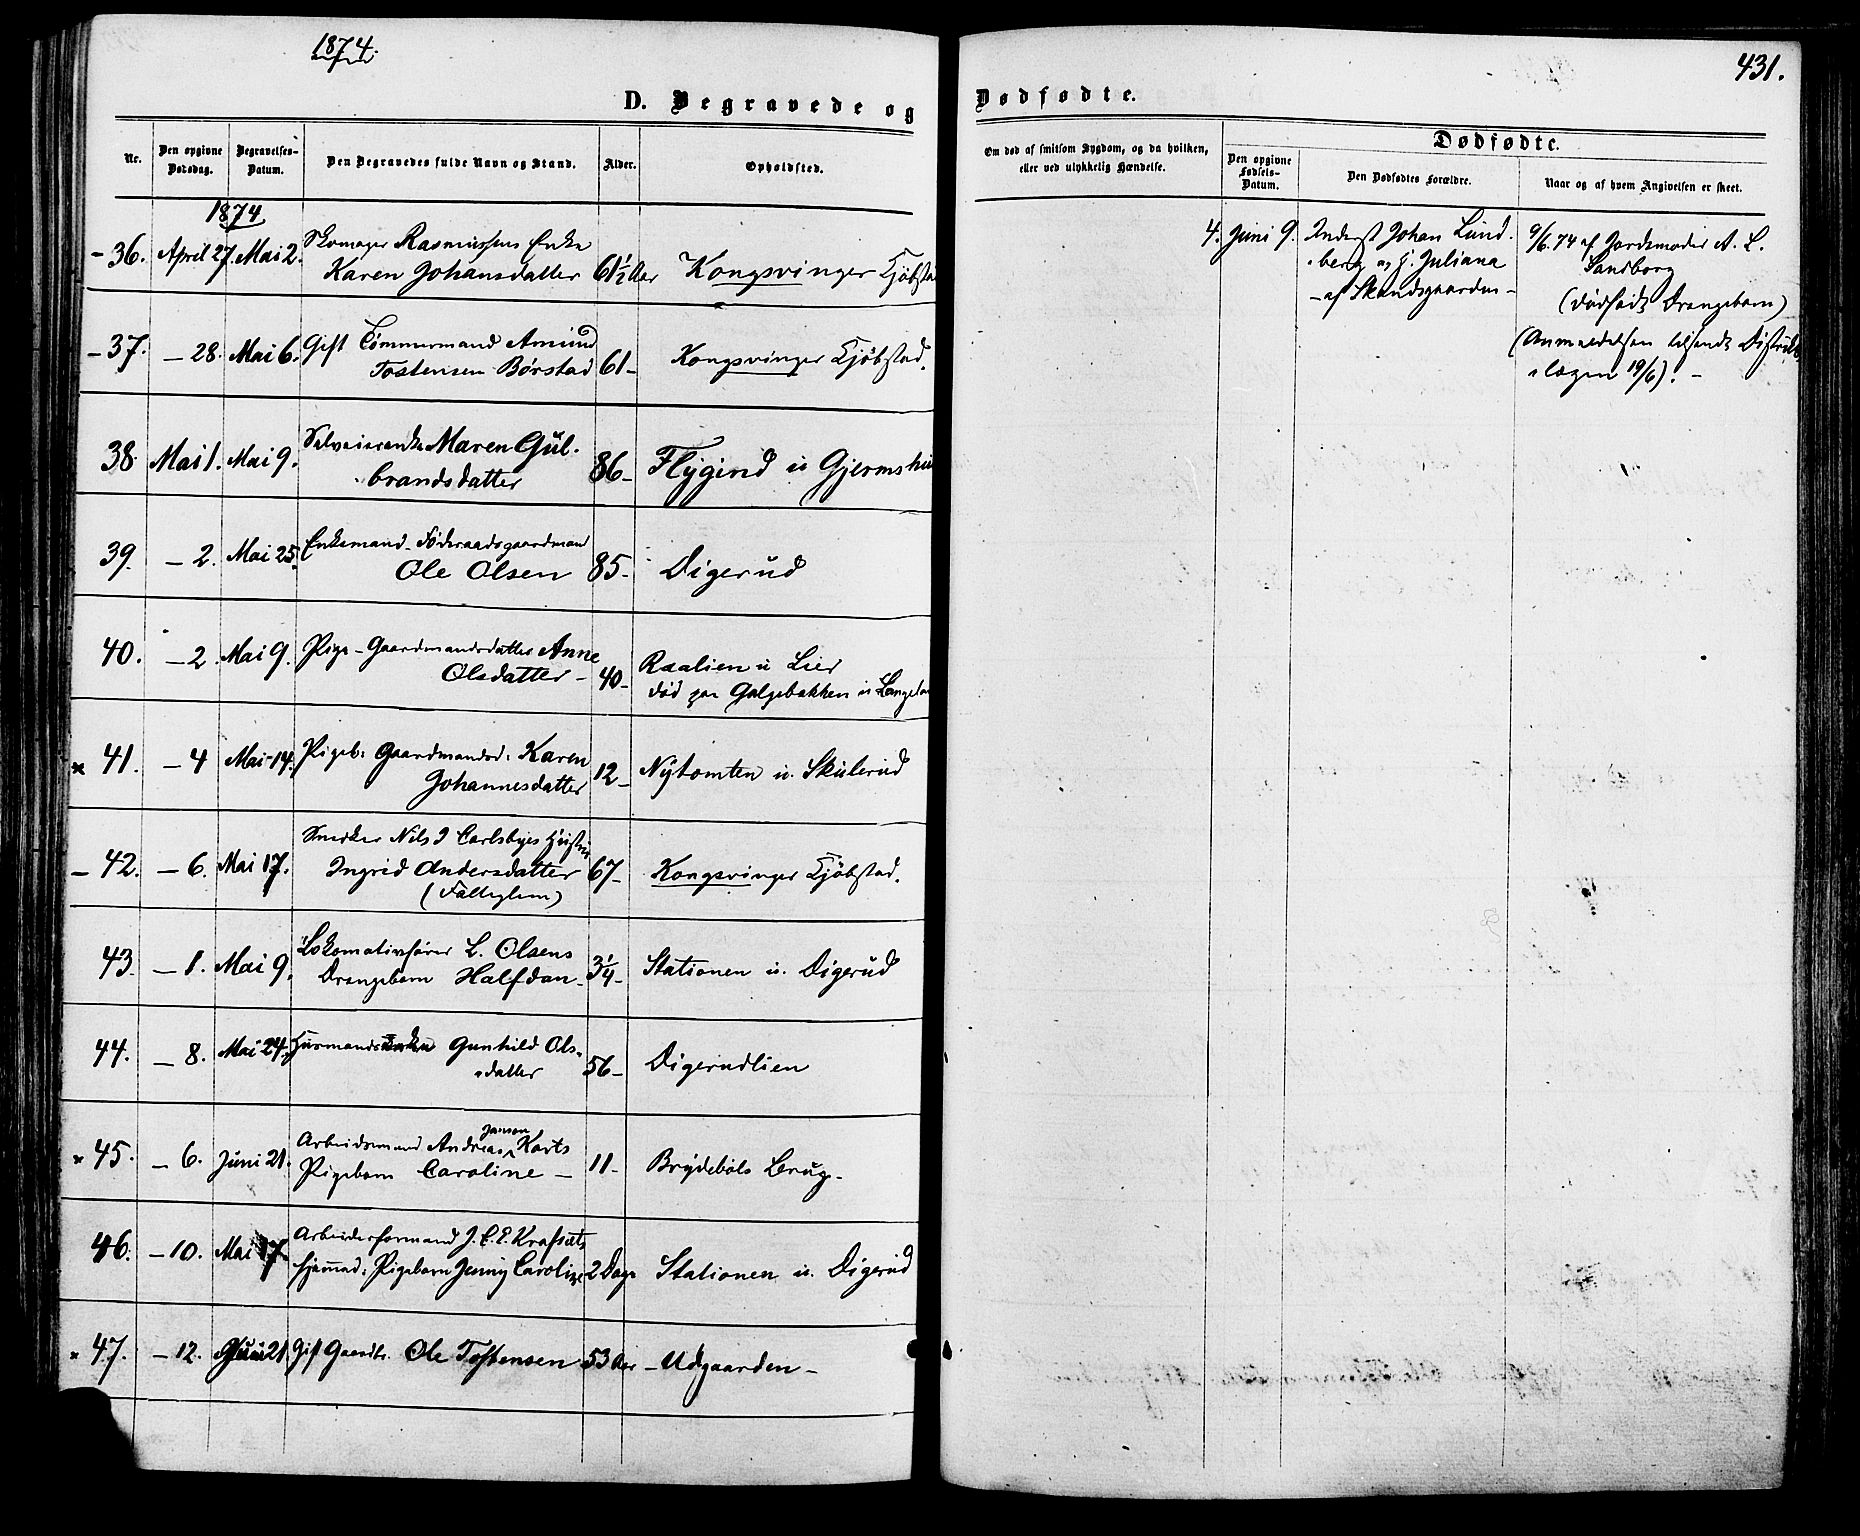 1874.
431.
D. Begravede og
Dødfødte.
Nr.
Den opgivne Dødsdag.
Begravelses-Datum.
Den Begravedes fulde Navn og Stand.
Alder.
Opholdssted.
Om død af smitsom Sygdom, og da hvilken,
eller ved ulykkelig Hændelse.
Dødfødte.
Den opgivne Fødsels-Datum.
Den Dødfødtes Forældre.
Naar og af hvem Angivelsen er skeet.
1874
- 36. April 27. Mai 2. Skomager Rasmussens Enke
Karen Johansdatter 61½ Aar Kongsvinger Kjøbstad
- 37. - 28. Mai 6. Gift Tømmermand Amund
Tostensen Børstad 61 - Kongsvinger Kjøbstad.
38. Mai 1. Mai 9. Selveierenke Maren Gul-
brandsdatter 86 - Flygind u Gjermshu
39. - 2. Mai 25. Enkemand - Føderaadsgaardmand
Ole Olsen 85 - Digerud
40. - 2. Mai 9. Pige - Gaardmandsdatter Anne
Olsdatter - 40 - Raalien u Lier
død paa Galgebakken u
x 41. - 4 Mai 14. Pigeb: Gaardmandsd: Karen
Johannesdatter 12 - Nytomten u. Skulerud
- 42. - 6. Mai 17. Snedker Nils J Carlsbyes Hustru
Ingrid Andersdatter 67 - Kongsvinger Kjøbstad.
(Fattiglem)
43. - 1. Mai 9. Lokomativfører L. Olsens
Drengebarn Halfdan - 3¼ - Stationen u. Digerud
44. - 8. Mai 24. Huusmands Gunhild Ols-
datter 56 - Digerudlien
Jansen
x 45. - 6. Juni 21. Arbeidsmand Andreas Karts
Pigebarn Caroline - 11 - Brydebøls Brug -
46. - 10. Mai 17. Arbeiderformand J. C. E. Krafsets
hjemmed: Pigebarn Jenny Caroline 2 Dage Stationen u. Digerud
x 47. - 12. Juni 21 Gift Gaardbr. Ole Tostensen 53 Aar - Udgaarden -
4. Juni 9. Johan Lund-
berg og H. Juliana
- af Skandsgaarden -
9/6. 74 af Jordemoder A. L.
Sandborg
(dødfødt Drengebarn)
(Anmeldelsen tilsendt Distrikts-
lægen 19/6). -